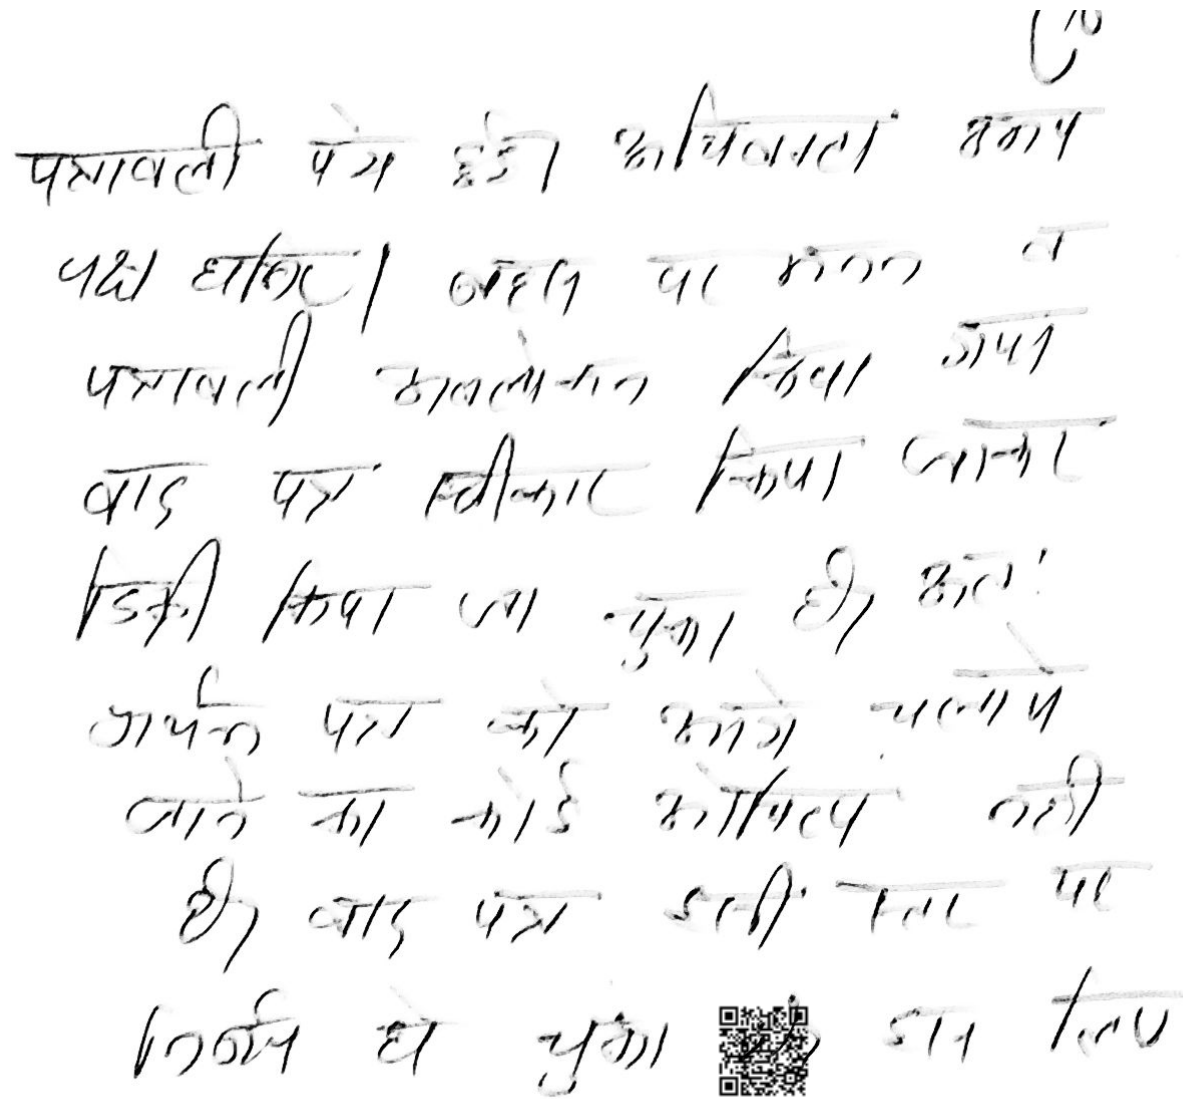 पत्रावली पेश हुई। अधिवक्ता उभय
पक्ष हाजिर। बहस पर मनन व
पत्रावली अवलोकन किया गया
वाद पत्र स्वीकार किया जाकर
डिक्री किया जा चुका है। अतः
पत्र को आगे चलाये
जाने का कोई औचित्य नही
है। वाद पत्र इसी स्तर पर
निर्णय हो चुका है इस लिए